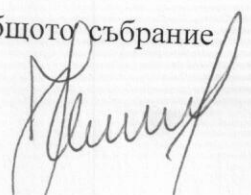 бщото събрание